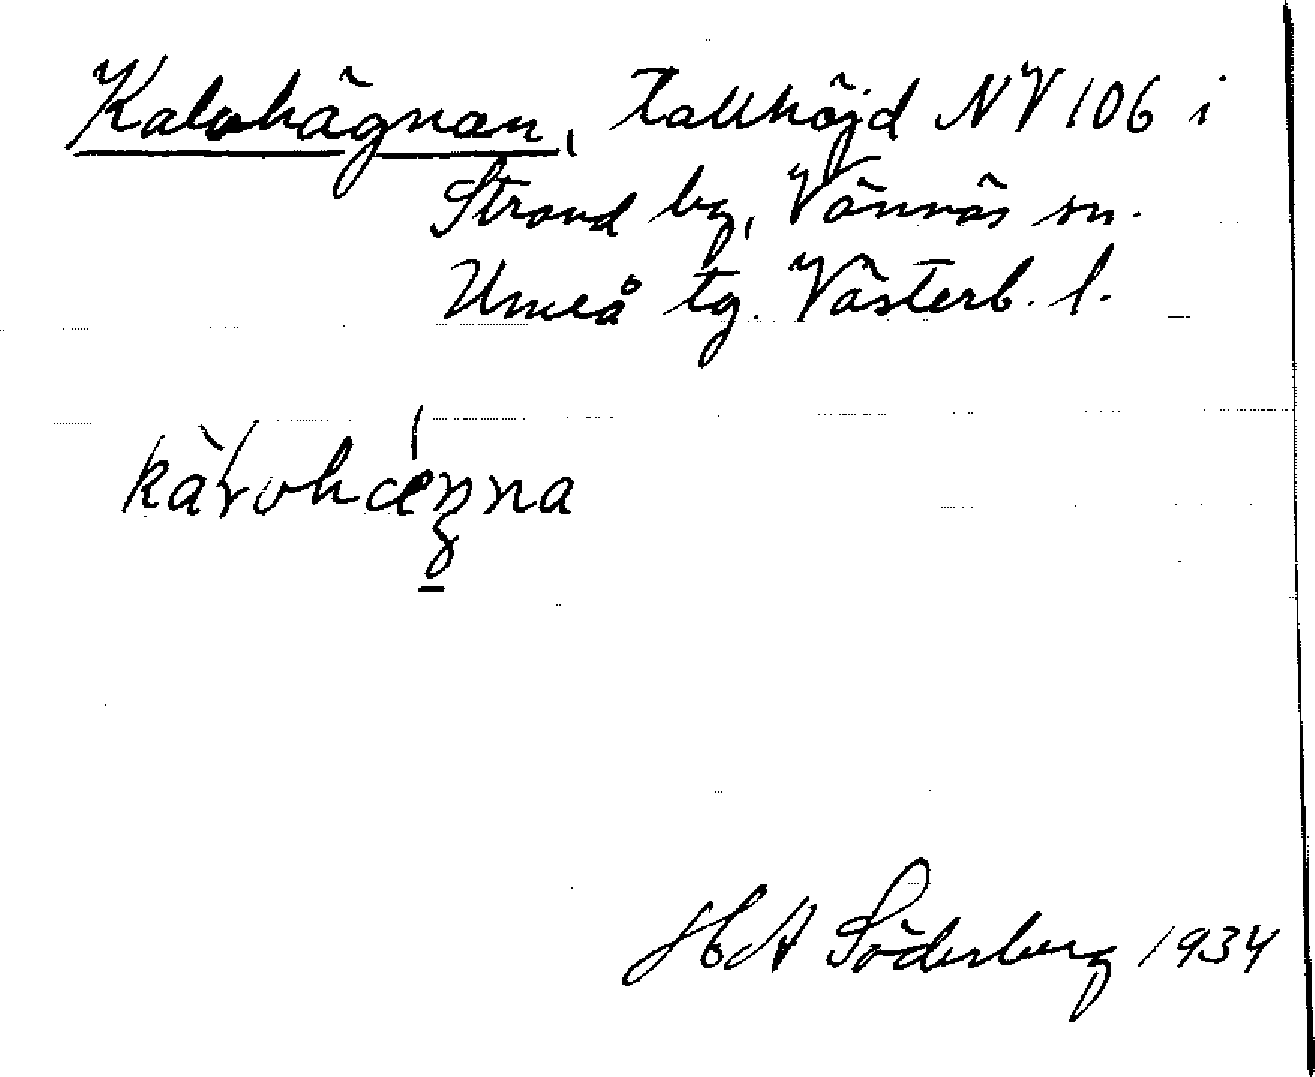 Kalvhägnan, tallhöjd NV 106 i
Strand by, Vännäs sn.
Umeå tg. Västerb. l.
H A Söderberg 1934